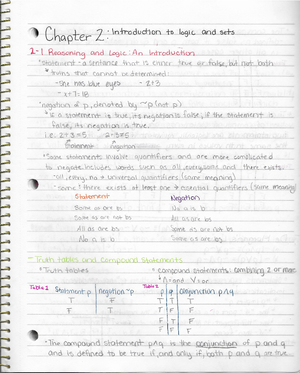 Chapter 2: Introduction to logic and sets
2-1 Reasoning and Logic: An Introduction
*statement - a sentence that is either true or false, but not both
*thins that cannot be determined:
-She has blue eyes -2+3
-x+7=18
*negation of p, denoted by ~p (not p)
*if a statement is true, its negation is false, if the statement is
false, its negation is true.
i.e. 2+3=5 2+3≠5
statement negation
*Some statements involve quantifiers and are more complicated
to negate. includes words such as all, every, some, and there exists.
-all, every, no → universal quantifiers (same meaning)
-some, there exists at least one → existential quantifiers (same meaning)
Statement Negation
Some as are bs No a is b
Some as are not bs All as are bs
All as are bs Some as are not bs
No a is b Some as are bs
- Truth tables and Compound Statements
*Truth tables *compound statements: combining 2 or more
*∧ and ∨ or
Table 1 Table 2
Statement p Negation ~p p q conjunction p∧q
T F T T T
F T T F F
F T F
F F F
*The compound statement p∧q is the conjunction of p and q
and is defined to be true if, and only if, both p and q are true